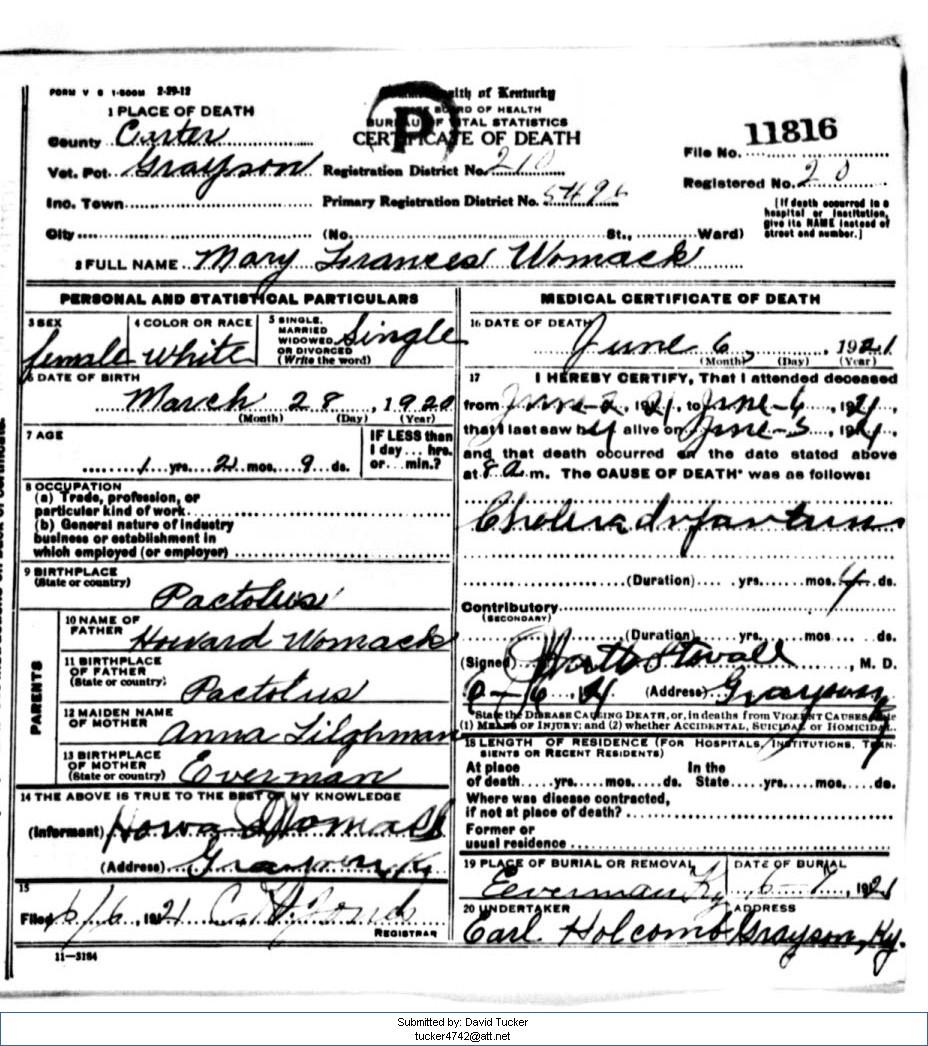 FORM V S 1-500M 2-29-12
1 PLACE OF DEATH
County Carter
Vot. Pct. Grayson
Inc. Town
City (No. St., Ward)
2 FULL NAME Mary Frances Womack
Commonwealth of Kentucky
STATE BOARD OF HEALTH
BUREAU OF VITAL STATISTICS
CERTIFICATE OF DEATH
P
Registration District No. 210
Primary Registration District No. 5492
11816
File No.
Registered No. 20
[If death occurred in a
hospital or institution,
give its NAME instead of
street and number.]
PERSONAL AND STATISTICAL PARTICULARS
3 SEX
female
4 COLOR OR RACE
white
5 SINGLE,
MARRIED
WIDOWED
OR DIVORCED
(Write the word)
Single
6 DATE OF BIRTH
March 28, 1920
(Month) (Day) (Year)
7 AGE
1 yrs. 2 mos. 9 ds.
IF LESS than
1 day... hrs.
or... min.?
8 OCCUPATION
(a) Trade, profession, or
particular kind of work
(b) General nature of industry
business or establishment in
which employed (or employer)
9 BIRTHPLACE
(State or country)
Pactolus
PARENTS
10 NAME OF
FATHER
Howard Womack
11 BIRTHPLACE
OF FATHER
(State or country)
Pactolus
12 MAIDEN NAME
OF MOTHER
Anna Lilghman
13 BIRTHPLACE
OF MOTHER
(State or country)
Everman
14 THE ABOVE IS TRUE TO THE BEST OF MY KNOWLEDGE
(Informant) Womack
(Address) Grayson, Ky
15
Filed 6/6, 1921
REGISTRAR
11—3184
MEDICAL CERTIFICATE OF DEATH
16 DATE OF DEATH
June 6, 1921
(Month) (Day) (Year)
17 I HEREBY CERTIFY, That I attended deceased
from June-2, 1921, to June-6, 1921,
that I last saw h alive on June-5, 1921,
and that death occurred on the date stated above
at 8 a.m. The CAUSE OF DEATH* was as follows:
Cholera Infantum
(Duration) yrs. mos. 4 ds.
Contributory
(SECONDARY)
(Duration) yrs. mos. ds.
(Signed) Watts Stovall, M. D.
6-6, 1921 (Address) Grayson, Ky
*State the DISEASE CAUSING DEATH, or, in deaths from VIOLENT CAUSES, state
(1) MEANS OF INJURY; and (2) whether ACCIDENTAL, SUICIDAL or HOMICIDAL.
18 LENGTH OF RESIDENCE (FOR HOSPITALS, INSTITUTIONS, TRAN-
SIENTS OR RECENT RESIDENTS)
At place In the
of death yrs. mos. ds. State yrs. mos. ds.
Where was disease contracted,
if not at place of death?
Former or
usual residence
19 PLACE OF BURIAL OR REMOVAL
Everman Ky
DATE OF BURIAL
6-7, 1921
20 UNDERTAKER
Earl Holcomb
ADDRESS
Grayson, Ky.
Submitted by: David Tucker
tucker4742@att.net